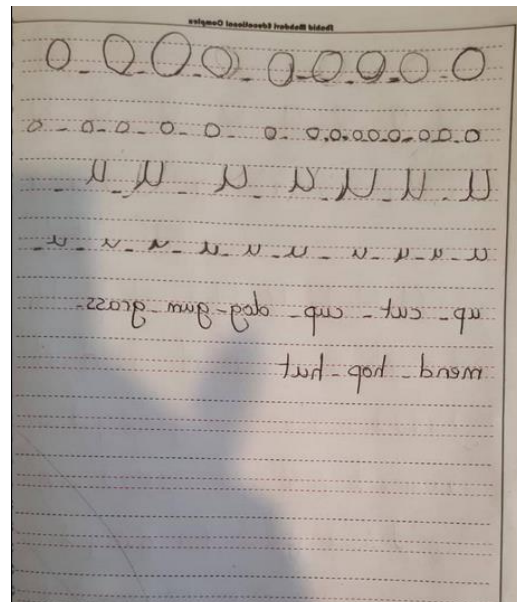 Educational Complex
O - O O O O - O O O - O
o - o - o - o - o - o - o - o - o - o - o - o - o - o
U - U - U - U - U - U - U -
u - u - u - u - u - u - u - u - u - u -
up - cut - cup - dog - gum - grass -
mend - hop - hut